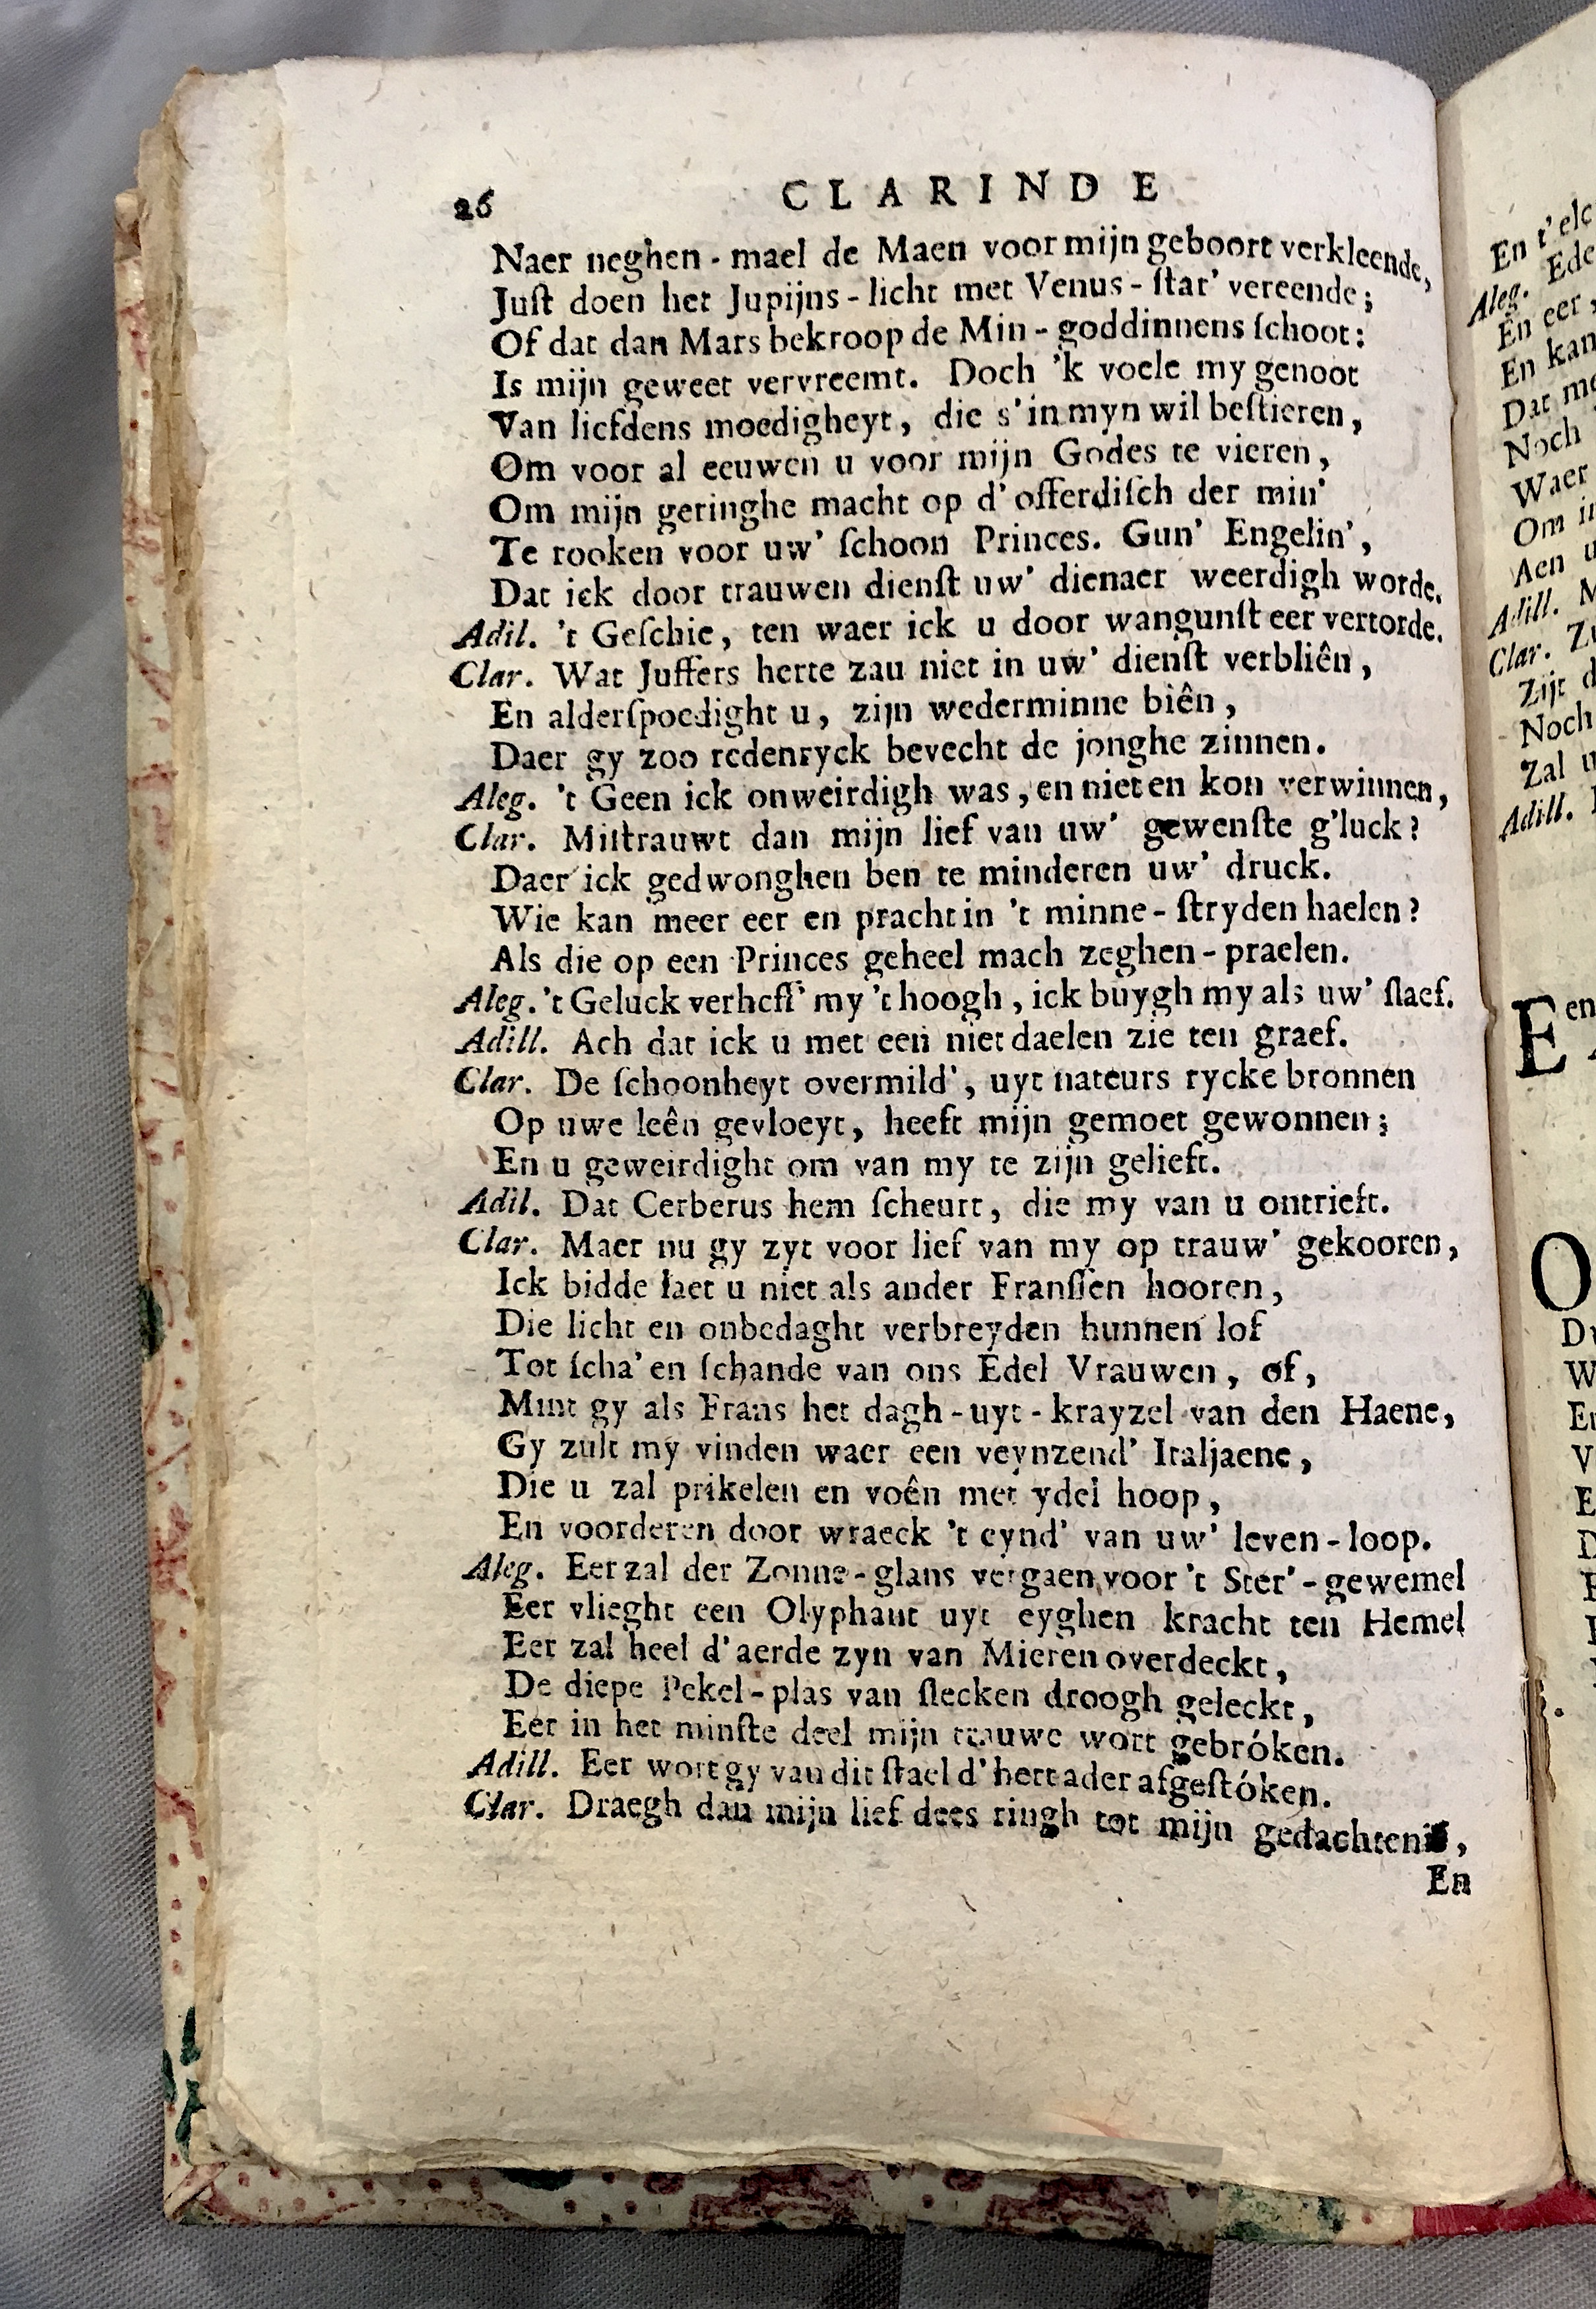 26 CLARINDE
Naer neghen-mael de Maen voor mijn geboort verkleende,
Juſt doen het Jupijns-licht met Venus-ſtar' vereende;
Of dat dan Mars bekroop de Min-goddinnens ſchoot:
Is mijn geweet vervreemt. Doch 'k voele my genoot
Van liefdens moedigheyt, die s'in myn wil beſtieren,
Om voor al eeuwen u voor mijn Godes te vieren,
Om mijn geringhe macht op d'offerdiſch der min'
Te rooken voor uw' ſchoon Princes. Gun' Engelin',
Dat ick door trauwen dienſt uw' dienaer weerdigh worde.
Adil. 't Geſchie, ten waer ick u door wangunſt eer vertorde.
Clar. Wat Juffers herte zau niet in uw' dienſt verbliên,
En alderſpoedight u, zijn wederminne biên,
Daer gy zoo redenryck bevecht de jonghe zinnen.
Aleg. 't Geen ick onweirdigh was, en niet en kon verwinnen,
Clar. Miſtrauwt dan mijn lief van uw' gewenſte g'luck?
Daer ick gedwonghen ben te minderen uw' druck.
Wie kan meer eer en pracht in 't minne-ſtryden haelen?
Als die op een Princes geheel mach zeghen-praelen.
Aleg. 't Geluck verheft' my 't hoogh, ick buygh my als uw' ſlaef.
Adill. Ach dat ick u met een niet daelen zie ten graef.
Clar. De ſchoonheyt overmild', uyt nateurs rycke bronnen
Op uwe leên gevloeyt, heeft mijn gemoet gewonnen;
En u geweirdight om van my te zijn gelieft.
Adil. Dat Cerberus hem ſcheurt, die my van u ontrieft.
Clar. Maer nu gy zyt voor lief van my op trauw' gekooren,
Ick bidde laet u niet als ander Franſſen hooren,
Die licht en onbedaght verbreyden hunnen lof
Tot ſcha' en ſchande van ons Edel Vrauwen, of,
Mint gy als Frans het dagh-uyt-krayzel van den Haene,
Gy zult my vinden waer een veynzend' Italjaene,
Die u zal prikelen en voên met ydel hoop,
En voorderen door wraeck 't eynd' van uw' leven-loop.
Aleg. Eer zal der Zonne-glans vergaen voor 't Ster'-gewemel
Eer vlieght een Olyphant uyt eyghen kracht ten Hemel
Eer zal heel d'aerde zyn van Mieren overdeckt,
De diepe Pekel-plas van ſlecken droogh geleckt,
Eer in het minſte deel mijn trauwe wort gebróken.
Adill. Eer wort gy van dit ſtael d'hert ader afgeſtóken.
Clar. Draegh dan mijn lief dees ringh tot mijn gedachtenis,
En
En t'elc
Ede
Aleg.
En eer,
En kan
Dat me
Noch
Waer
Om i
Aen u
Adill. M
Clar. Z
Zijt d
Noch
Zal u
Adill.
Een
O
D
W
E
V
E
D